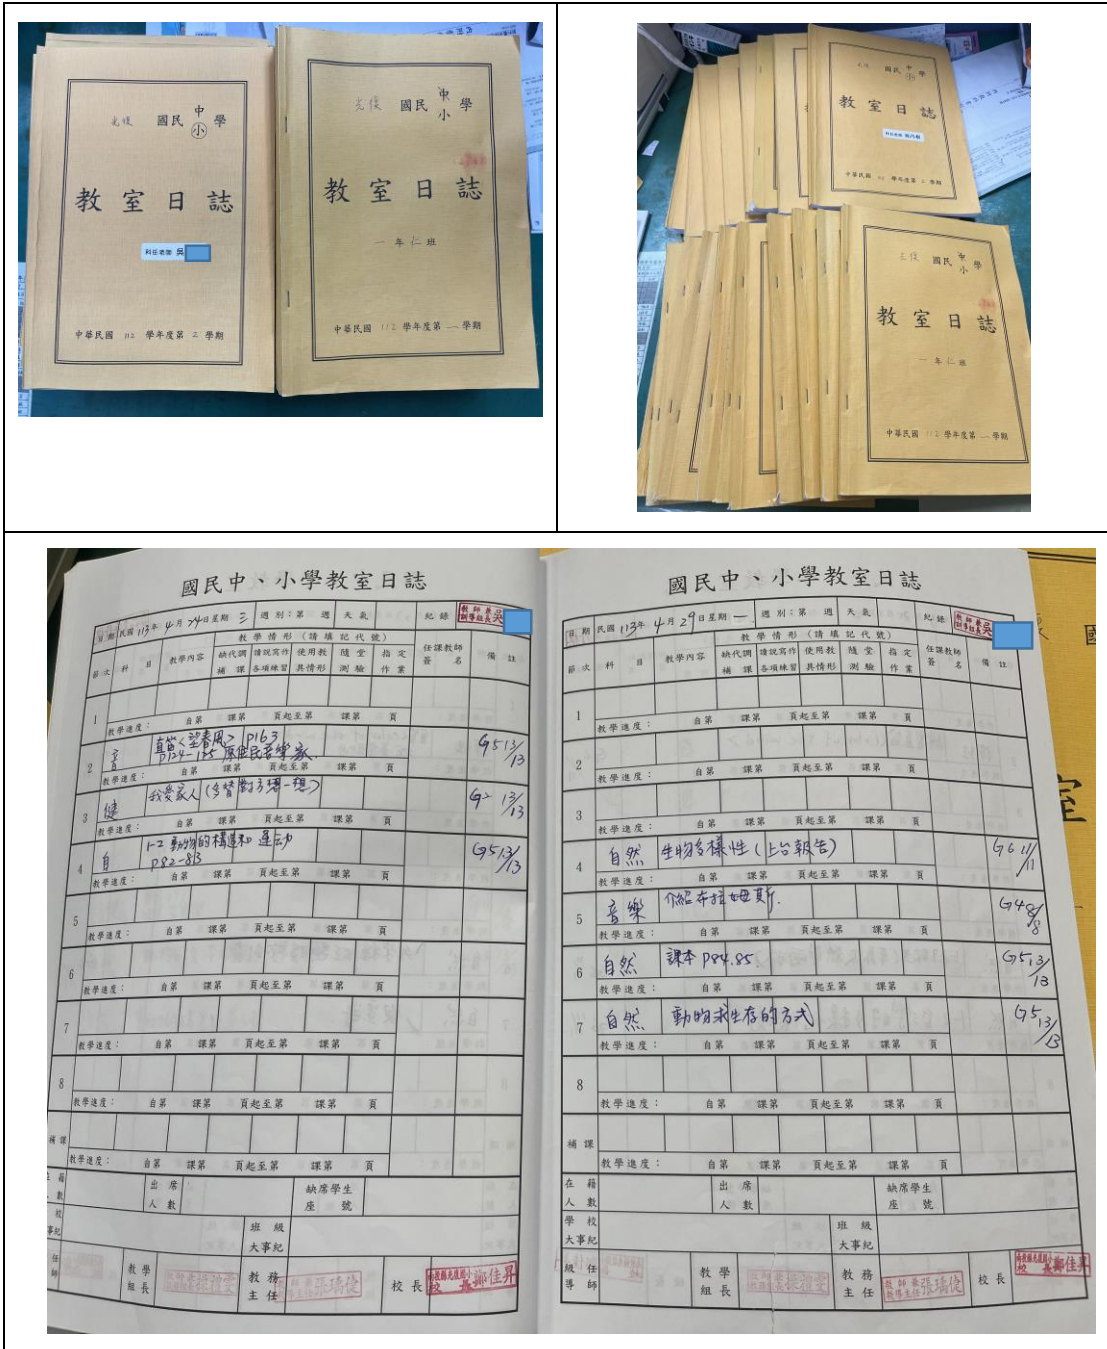 光復 國民 中小 學
教室日誌
科任老師 吳
中華民國 112 學年度第 二 學期
光復 國民 中小 學
教室日誌
一年仁班
中華民國 112 學年度第 二 學期
光復 國民 中小 學
教室日誌
科任老師
中華民國 112 學年度第 二 學期
光復 國民 中小 學
教室日誌
一年仁班
中華民國 112 學年度第 二 學期
國民中、小學教室日誌
日期 民國 113年 4月 24日 星期 三 週別：第 週 天氣 紀錄 教師兼訓導組長 吳
節次 科目 教學內容 教學情形（請填記代號） 任課教師簽名 備註
缺代調補課 讀說寫作各項練習 使用教具情形 隨堂測驗 指定作業
1
教學進度： 自第 課第 頁起至第 課第 頁
2 音 直笛<望春風> P163 G5 13/13
P124-125 原住民音樂家
教學進度： 自第 課第 頁起至第 課第 頁
3 健 我愛家人(多替對方想一想) G2 13/13
教學進度： 自第 課第 頁起至第 課第 頁
4 自 1-2 動物的構造和運動 G5 13/13
P82-83
教學進度： 自第 課第 頁起至第 課第 頁
5
教學進度： 自第 課第 頁起至第 課第 頁
6
教學進度： 自第 課第 頁起至第 課第 頁
7
教學進度： 自第 課第 頁起至第 課第 頁
8
教學進度： 自第 課第 頁起至第 課第 頁
補課
教學進度： 自第 課第 頁起至第 課第 頁
在籍人數 出席人數 缺席學生座號
學校大事紀 班級大事紀
級任導師 教學組長 教務主任 張瑀倢 校長 鄭佳昇
國民中、小學教室日誌
日期 民國 113年 4月 29日 星期 一 週別：第 週 天氣 紀錄 教師兼訓導組長 吳
節次 科目 教學內容 教學情形（請填記代號） 任課教師簽名 備註
缺代調補課 讀說寫作各項練習 使用教具情形 隨堂測驗 指定作業
1
教學進度： 自第 課第 頁起至第 課第 頁
2
教學進度： 自第 課第 頁起至第 課第 頁
3
教學進度： 自第 課第 頁起至第 課第 頁
4 自然 生物多樣性(上台報告) G6 11/11
教學進度： 自第 課第 頁起至第 課第 頁
5 音樂 介紹布拉姆斯. G4 8/8
教學進度： 自第 課第 頁起至第 課第 頁
6 自然 課本 P84.85 G5 13/13
教學進度： 自第 課第 頁起至第 課第 頁
7 自然 動物求生存的方式 G5 13/13
教學進度： 自第 課第 頁起至第 課第 頁
8
教學進度： 自第 課第 頁起至第 課第 頁
補課
教學進度： 自第 課第 頁起至第 課第 頁
在籍人數 出席人數 缺席學生座號
學校大事紀 班級大事紀
級任導師 教學組長 教務主任 張瑀倢 校長 鄭佳昇